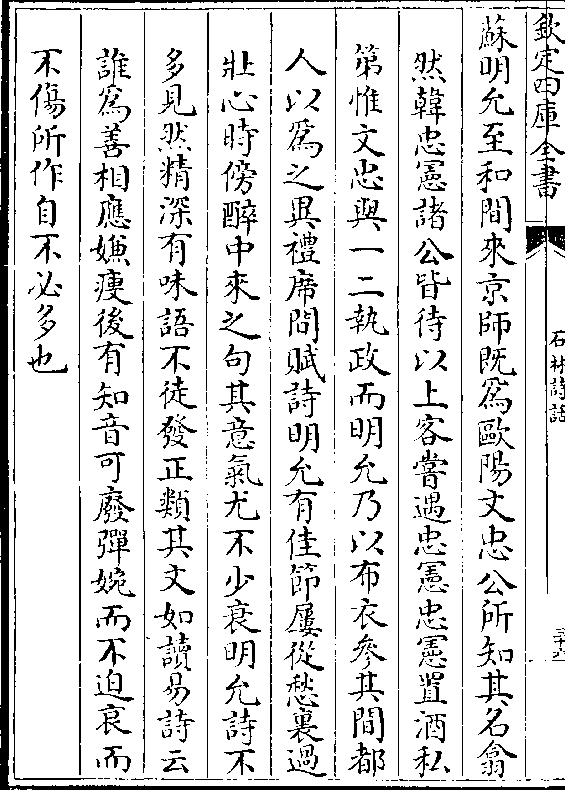 欽定四庫全書
石林詩話
蘇明允至和間來京師既爲歐陽文忠公所知其名翕
然韓忠憲諸公皆待以上客嘗遇忠憲忠憲置酒私
第惟文忠與一二執政而明允乃以布衣參其間都
人以爲之異禮席間賦詩明允有佳節屢從愁裏過
壯心時傍醉中來之句其意氣尤不少衰明允詩不
多見然精深有味語不徒發正類其文如讀易詩云
誰爲善相應嫌瘦後有知音可廢彈婉而不迫哀而
不傷所作自不必多也